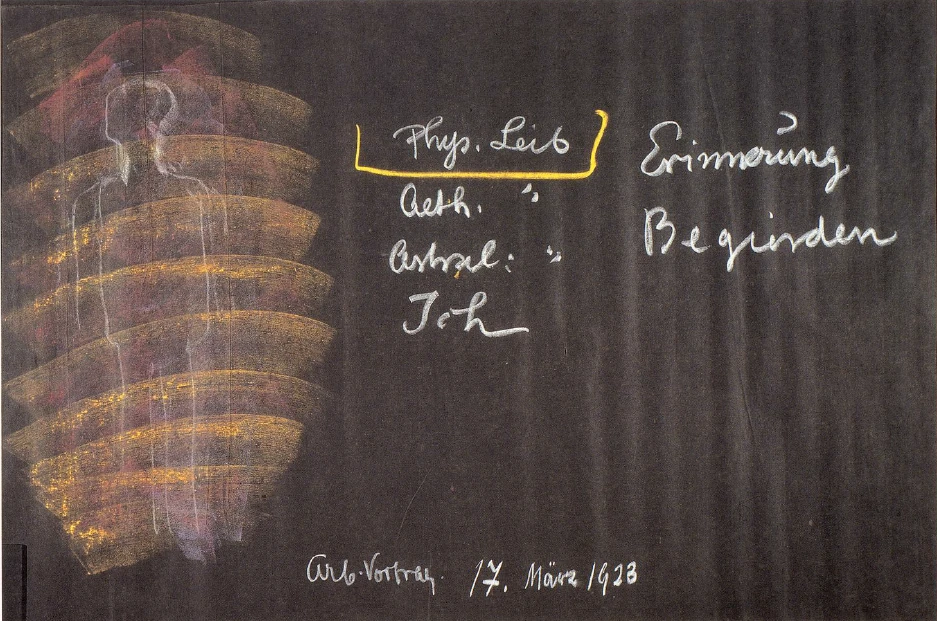 Phys. Leib
Aeth. "
Astral: "
Ich
Erinnerung
Begierden
Arb. Vortrag. 17. März 1923